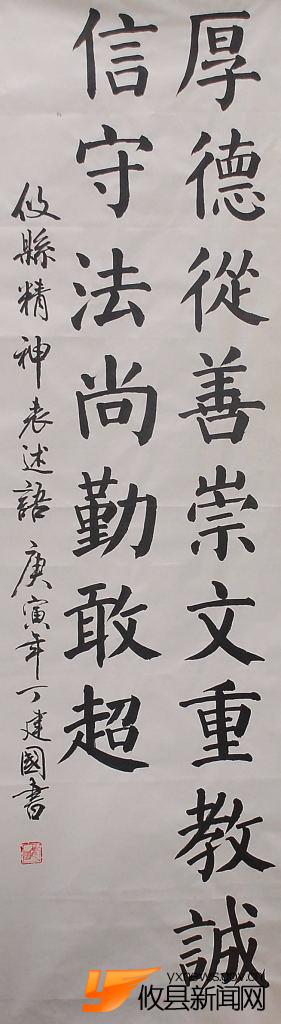 厚德從善崇文重教誠
信守法尚勤敢超
攸縣精神表述語 庚寅年丁建國書
yxnews.gov.cn
攸县新闻网